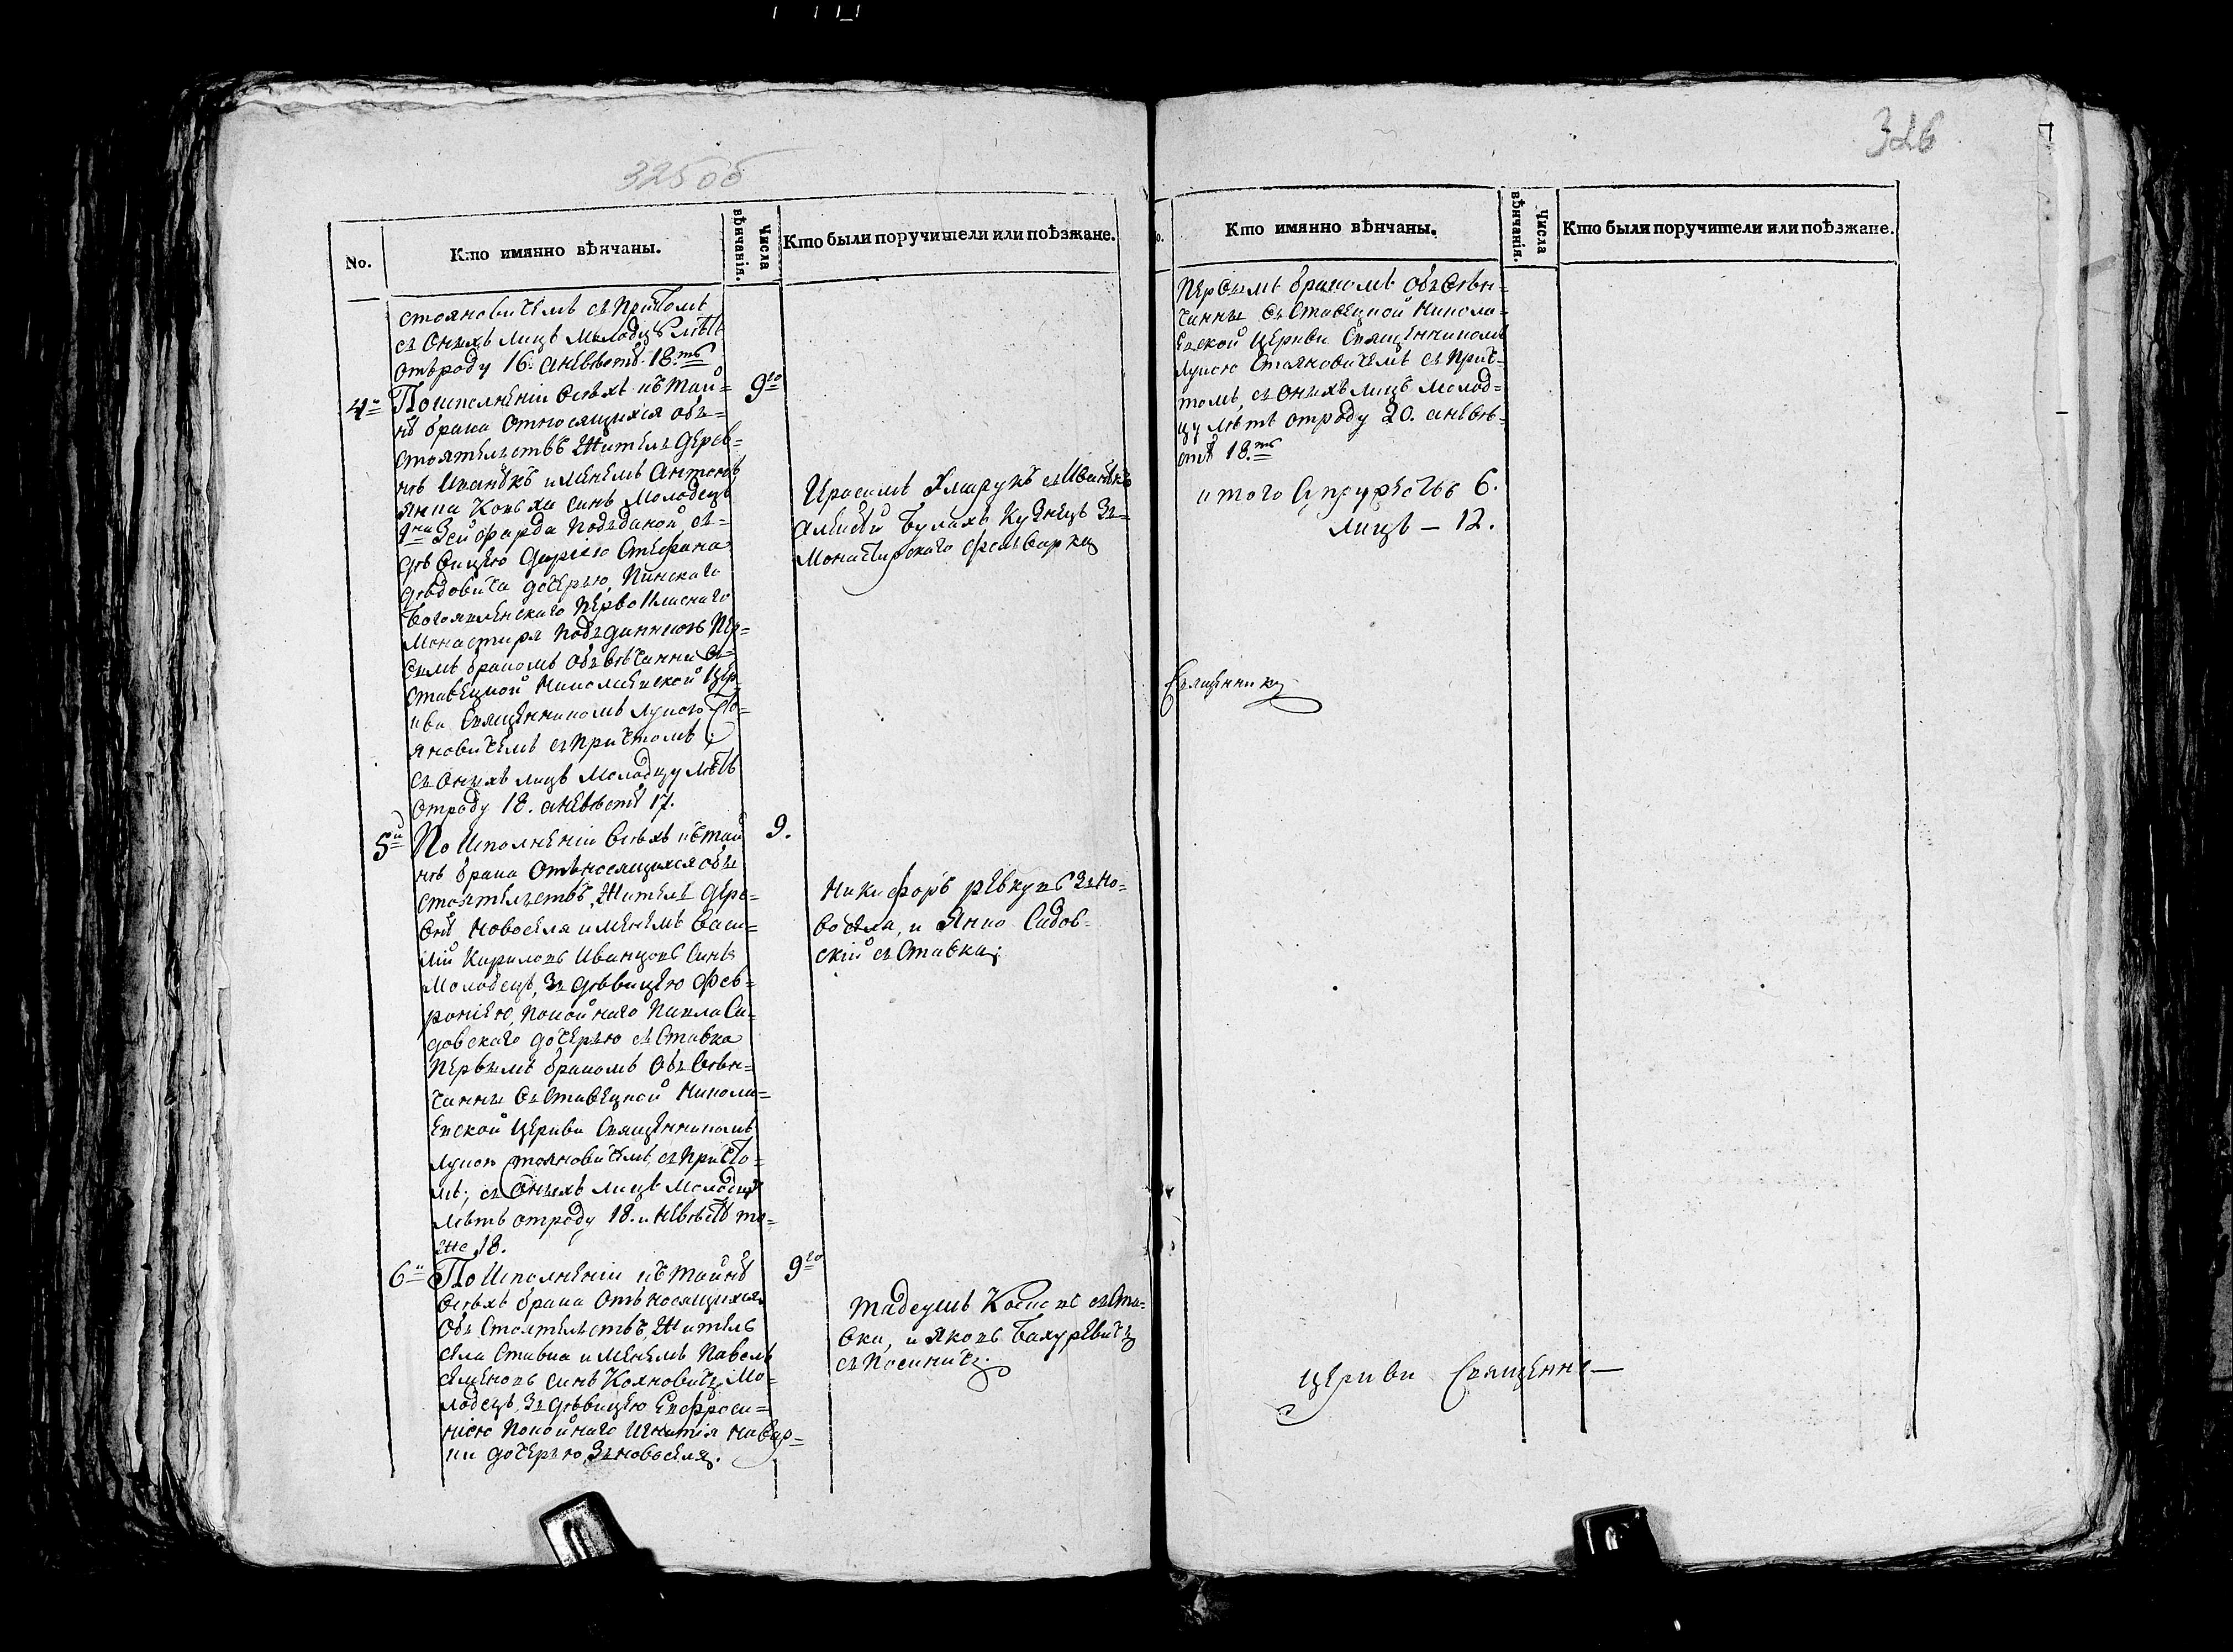 325 об
No.
Кто имянно вѣнчаны.
Числа вѣнчанія.
Кто были поручители или поѣзжане.
стояновичемъ съ Притомъ
съ Оныхъ лицъ Молодцу лѣтъ
отъ роду 16. аневѣстѣ. 18.ть
4й
По исполненіи Всѣхъ къ таи=
нѣ брака Относящихся объ=
стоятельствъ Житель Дерев=
нѣ Иванѣкъ именемъ Антонъ,
сынъ Молодецъ
дѣвицею Стефана
дочерью, Пинскаго
Богоявленскаго Первокласнаго
Монастиря Подъданнюкъ Пер=
вымъ бракомъ Объвѣнчанни въ
Ставецкой Николаевской Цер
кви Священникомъ Лукою Сто=
яновичемъ съ Причтомъ;
съ Оныхъ лицъ Молодцу лѣтъ
отроду 18. аневѣстѣ 17.
9го
съ Иванѣкъ
Кузнецъ Зъ=
Монастирскаго фольварку
5й
По Исполненіи Всѣхъ къ таи
нѣ брака Отъносящихся объ
стоятельствъ, Житель Дере=
внѣ Новоселя именемъ Васи=
лій Кириловъ Иванцовъ Синъ
Молодецъ, Зъ дѣвицею Фев=
роніею, Покойнаго Павла Си=
довскаго дочерью съ Ставка
Первымъ бракомъ Объвѣн=
чанны Въ Ставецкой Никола=
евской Церкви Священникомъ
Лукою стояновичемъ, съ Причто=
мъ; съ Оныхъ лицъ Молодцу
лѣтъ отроду 18. и невѣстѣ то=
же 18.
9.
Никифоръ Ревкувъ Зъ Но=
воселя, и Янко Сидов=
скій съ Ставка;
6й
По Исполненіи къ тайнѣ
Всѣхъ брака Отъносящихся
Объ Стоятельствъ, Житель
села Ставка именемъ Павелъ
Семеновъ синъ Кояновичъ Мо=
лодецъ, Зъ дѣвицею Евфроси=
ніею Покойнаго Игнатія Навар=
ки дочерью, Зъ новоселя.
9го
Тадеушъ съ Ста=
вка, и Яковъ Бахуревичъ
съ Посинич.
326
Кто имянно вѣнчаны.
Числа вѣнчанія.
Кто были поручители или поѣзжане.
Первымъ бракомъ Объвѣн=
чанны Въ Ставецкой Никола=
евской Церкви Священникомъ
Лукою Стояновичемъ съ Прич=
томъ, съ Оныхъ лицъ Молод=
цу лѣтъ отроду 20. аневѣ=
стѣ 18.ть
итого Супружствъ 6.
лицъ — 12.
Священникъ
церкви Священно—